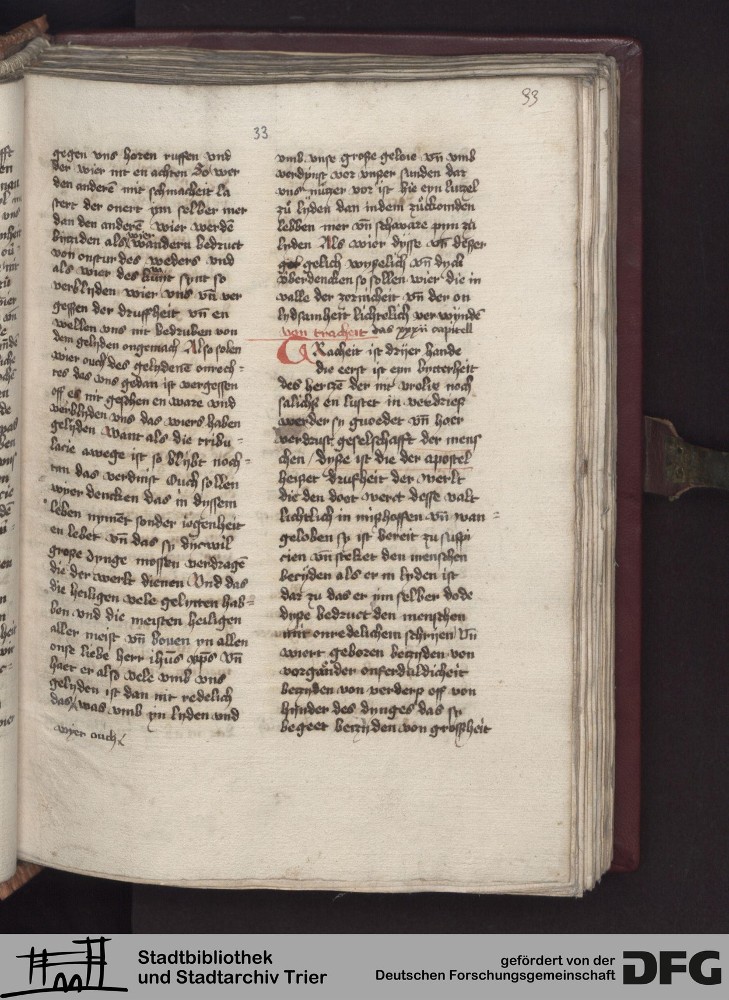 33
33
gegen vns horen ruffen vnd
der wier nit en achten So wer
den anderē mit schmacheit la
stert der onert ym selber mer
dan den anderē wier werdē
byunden als wier wandern bedruct
von onstur des weders vnd
als wier des kunt synt so
verblyden wier vns vn̄ ver
gessen der druffheit vn̄ en
wellen vns nit bedruben von
dem gelyden ongemach Also solen
wier ouch des gelydenē onrech-
tes das vns gedan ist vergessen
off es nit geschen en ware vnd
verblyden vns das wiers haben
gelyden want als die tribu-
lacie awege ist so blybt noch-
tan das verdinst Ouch sollen
wyer dencken das in dyssem
leben nymēt sonder iogenheit
en lebet vn̄ das sy dyc wil
große dynge mossen verdragē
die der werlt dienen Vnd das
die heiligen vele gelytten hab-
ben vnd die meisten heiligen
aller meist vn̄ bouen yn allen
onse liebe herr ihūs xp̄s vn̄
haet er also vele vmb vns
gelyden ist dan nit redelich
das was vmb yn lyden vnd
wyer ouch
vmb vnse große geloie vn̄ vmb
verdynst vor vnser sunden dat
vns nutzer vor ist hie eyn lutzel
zů lyden dan indem zůckomden
lebben mer vn̄ schware pyn zů
lyden Als wier dysse vn̄ deßer
gelich wyselich vn̄ dyck
vberdencken so sollen wier die in
valle der zornicheit vn̄ der on
lydsamheit lichtelich verwyndē
von tracheit das xxxii capitell
TRacheit ist dryer hande
die eerst ist eyn bytterheit
des hertzē der nit vrolix noch
salichs en lustet in verdrieß
werder sy guoedet vn̄ haer
verdrust geselschafft der mens
chen / dyße ist die der apostel
heisset drufheit der werlt
die den doet werct desse valt
lichtlich in mißhoffen vn̄ wan-
geloben sy ist bereit zu suspi
cien vn̄ stecket den menschen
betzyden als er in lyden ist
dar zu das er ym selber dode
dyße bedruct den menschen
mit onredelichem schryen vn̄
wiert geboren betzyden von
vorgander onferduldicheit
betzyden von verderß off von
hynder des dynges das sy
begeet betzyden von großheit
Stadtbibliothek
und Stadtarchiv Trier
gefördert von der
Deutschen Forschungsgemeinschaft
DFG